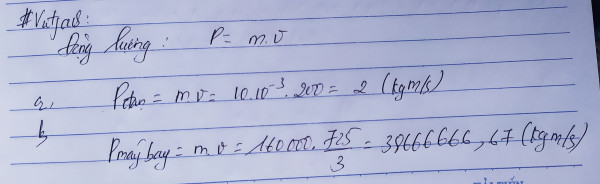 #Vatja8:
Động lượng: P = m.v
a, Pđạn = m.v = 10.10⁻³.200 = 2 (kgm/s)
b, Pmáy bay = m.v = 160000. 725/3 = 38666666,67 (kgm/s)